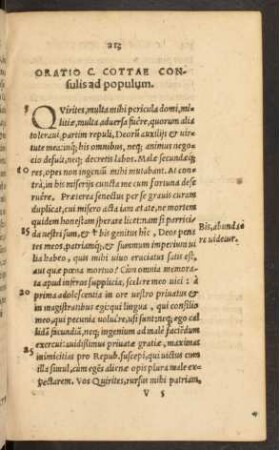 213
ORATIO C. COTTAE CON-
sulis ad populum.
5 QVirites, multa mihi pericula domi, mi-
litiæ, multa aduersa fuêre, quorum alia
toleraui, partim repuli, Deorũ auxilijs & vir-
tute mea: inq; his omnibus, neq; animus nego-
cio defuit, neq; decretis labos. Malæ secundæq;
10 res, opes non ingeniũ mihi mutabant. At con-
trà, in his miserijs cuncta me cum fortuna dese
ruêre, Præterea senectus per se grauis curam
duplicat, cui misero acta iam ætate, ne mortem
quidem honestam sperare licet: nam si parricida
15 uestri sum, & bis genitus hîc, Deos pena-
tes meos, patriamq;, & summum imperium ui-
lia habeo, quis mihi uiuo cruciatus satis est,
aut quæ pœna mortuo? Cùm omnia memora-
ta apud inferos supplicia, scelere meo uici: à
20 prima adolescentia in ore uestro priuatus &
in magistratibus egi: qui lingua, qui consilio
meo, qui pecunia voluêre, usi sunt: neq; ego cal
lidã facundiã, neq; ingenium ad malè faciẽdum
exercui: auidissimus priuatæ gratiæ, maximas
25 inimicitias pro Repub. suscepi, qui uictus cum
illa simul, cùm egẽs alienæ opis plura mala ex-
pectarem. Vos Quirites, rursus mihi patriam,
V 5
Bis, abundare
uidetur.